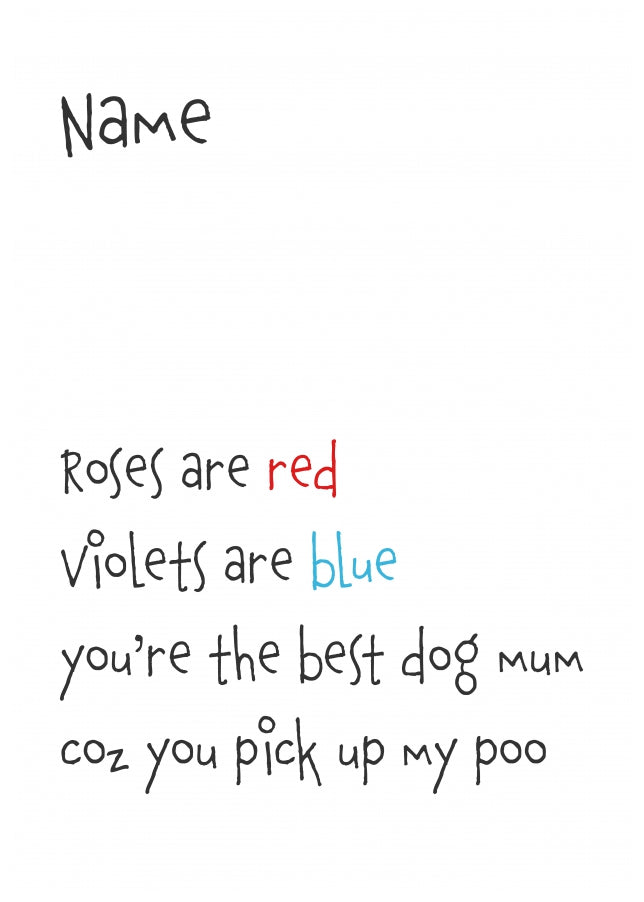 Name
Roses are red
Violets are blue
you're the best dog mum
coz you pick up my poo